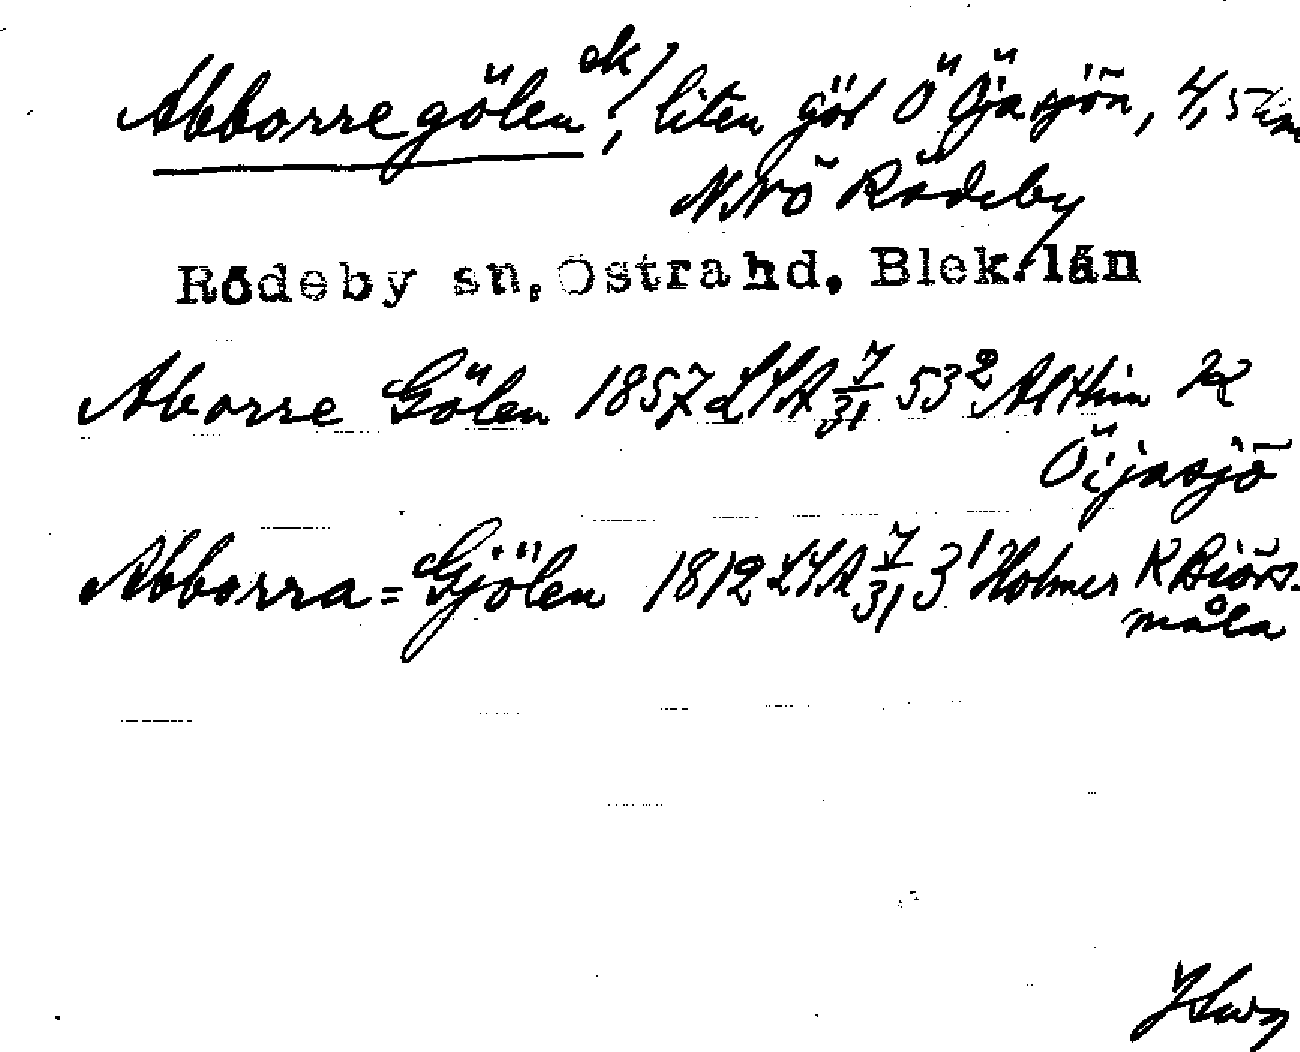 Abborregölen ek/, liten göl Ö Öjasjön, 4,5 km
NNÖ Rödeby
Rödeby sn, Östra hd, Blek. län
Aborre Gölen 1857 LSA 7/31 53² Afthin R
Öijasjö
Abborra=Gjölen 1812 LSA 7/31 3¹ Holmer R Biörs-
måla